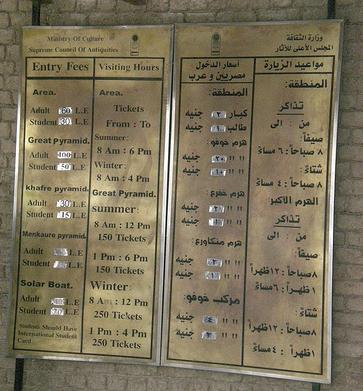 Ministry Of Culture
Supreme Council Of Antiquities
Entry Fees
Area.
Adult 60 L.E
Student 30 L.E
Great Pyramid.
Adult 100 L.E
Student 50 L.E
khafre pyramid.
Adult 30 L.E
Student 15 L.E
Menkaure pyramid.
Adult L.E
Student L.E
Solar Boat.
Adult L.E
Student L.E
Students Should Have
International Student
Card.
Visiting Hours
Area.
Tickets
From : To
Summer:
8 Am : 6 Pm
Winter:
8 Am : 4 Pm
Great Pyramid.
summer:
8 Am : 12 Pm
150 Tickets
1 Pm : 6 Pm
150 Tickets
Winter:
8 Am : 12 Pm
250 Tickets
1 Pm : 4 Pm
250 Tickets
وزارة الثقافة
المجلس الأعلى للآثار
مواعيد الزيارة
المنطقة:
تذاكر
من : الى
صيفا:
٨ صباحا : ٦ مساء
شتاء:
٨ صباحا : ٤ مساء
الهرم الاكبر
تذاكر
من : الى
صيفا:
٨ صباحا : ١٢ ظهرا
١ ظهرا : ٦ مساء
شتاء:
٨ صباحا : ١٢ ظهرا
١ ظهرا : ٤ مساء
أسعار الدخول
مصريين و عرب
المنطقة:
كبار ٢ جنيه
طالب ١ جنيه
هرم خوفو:
" " ٢٠ جنيه
" " ١٠ جنيه
هرم خفرع:
" " جنيه
" " جنيه
هرم منكاورع:
" " جنيه
" " جنيه
مركب خوفو:
" " جنيه
" " جنيه